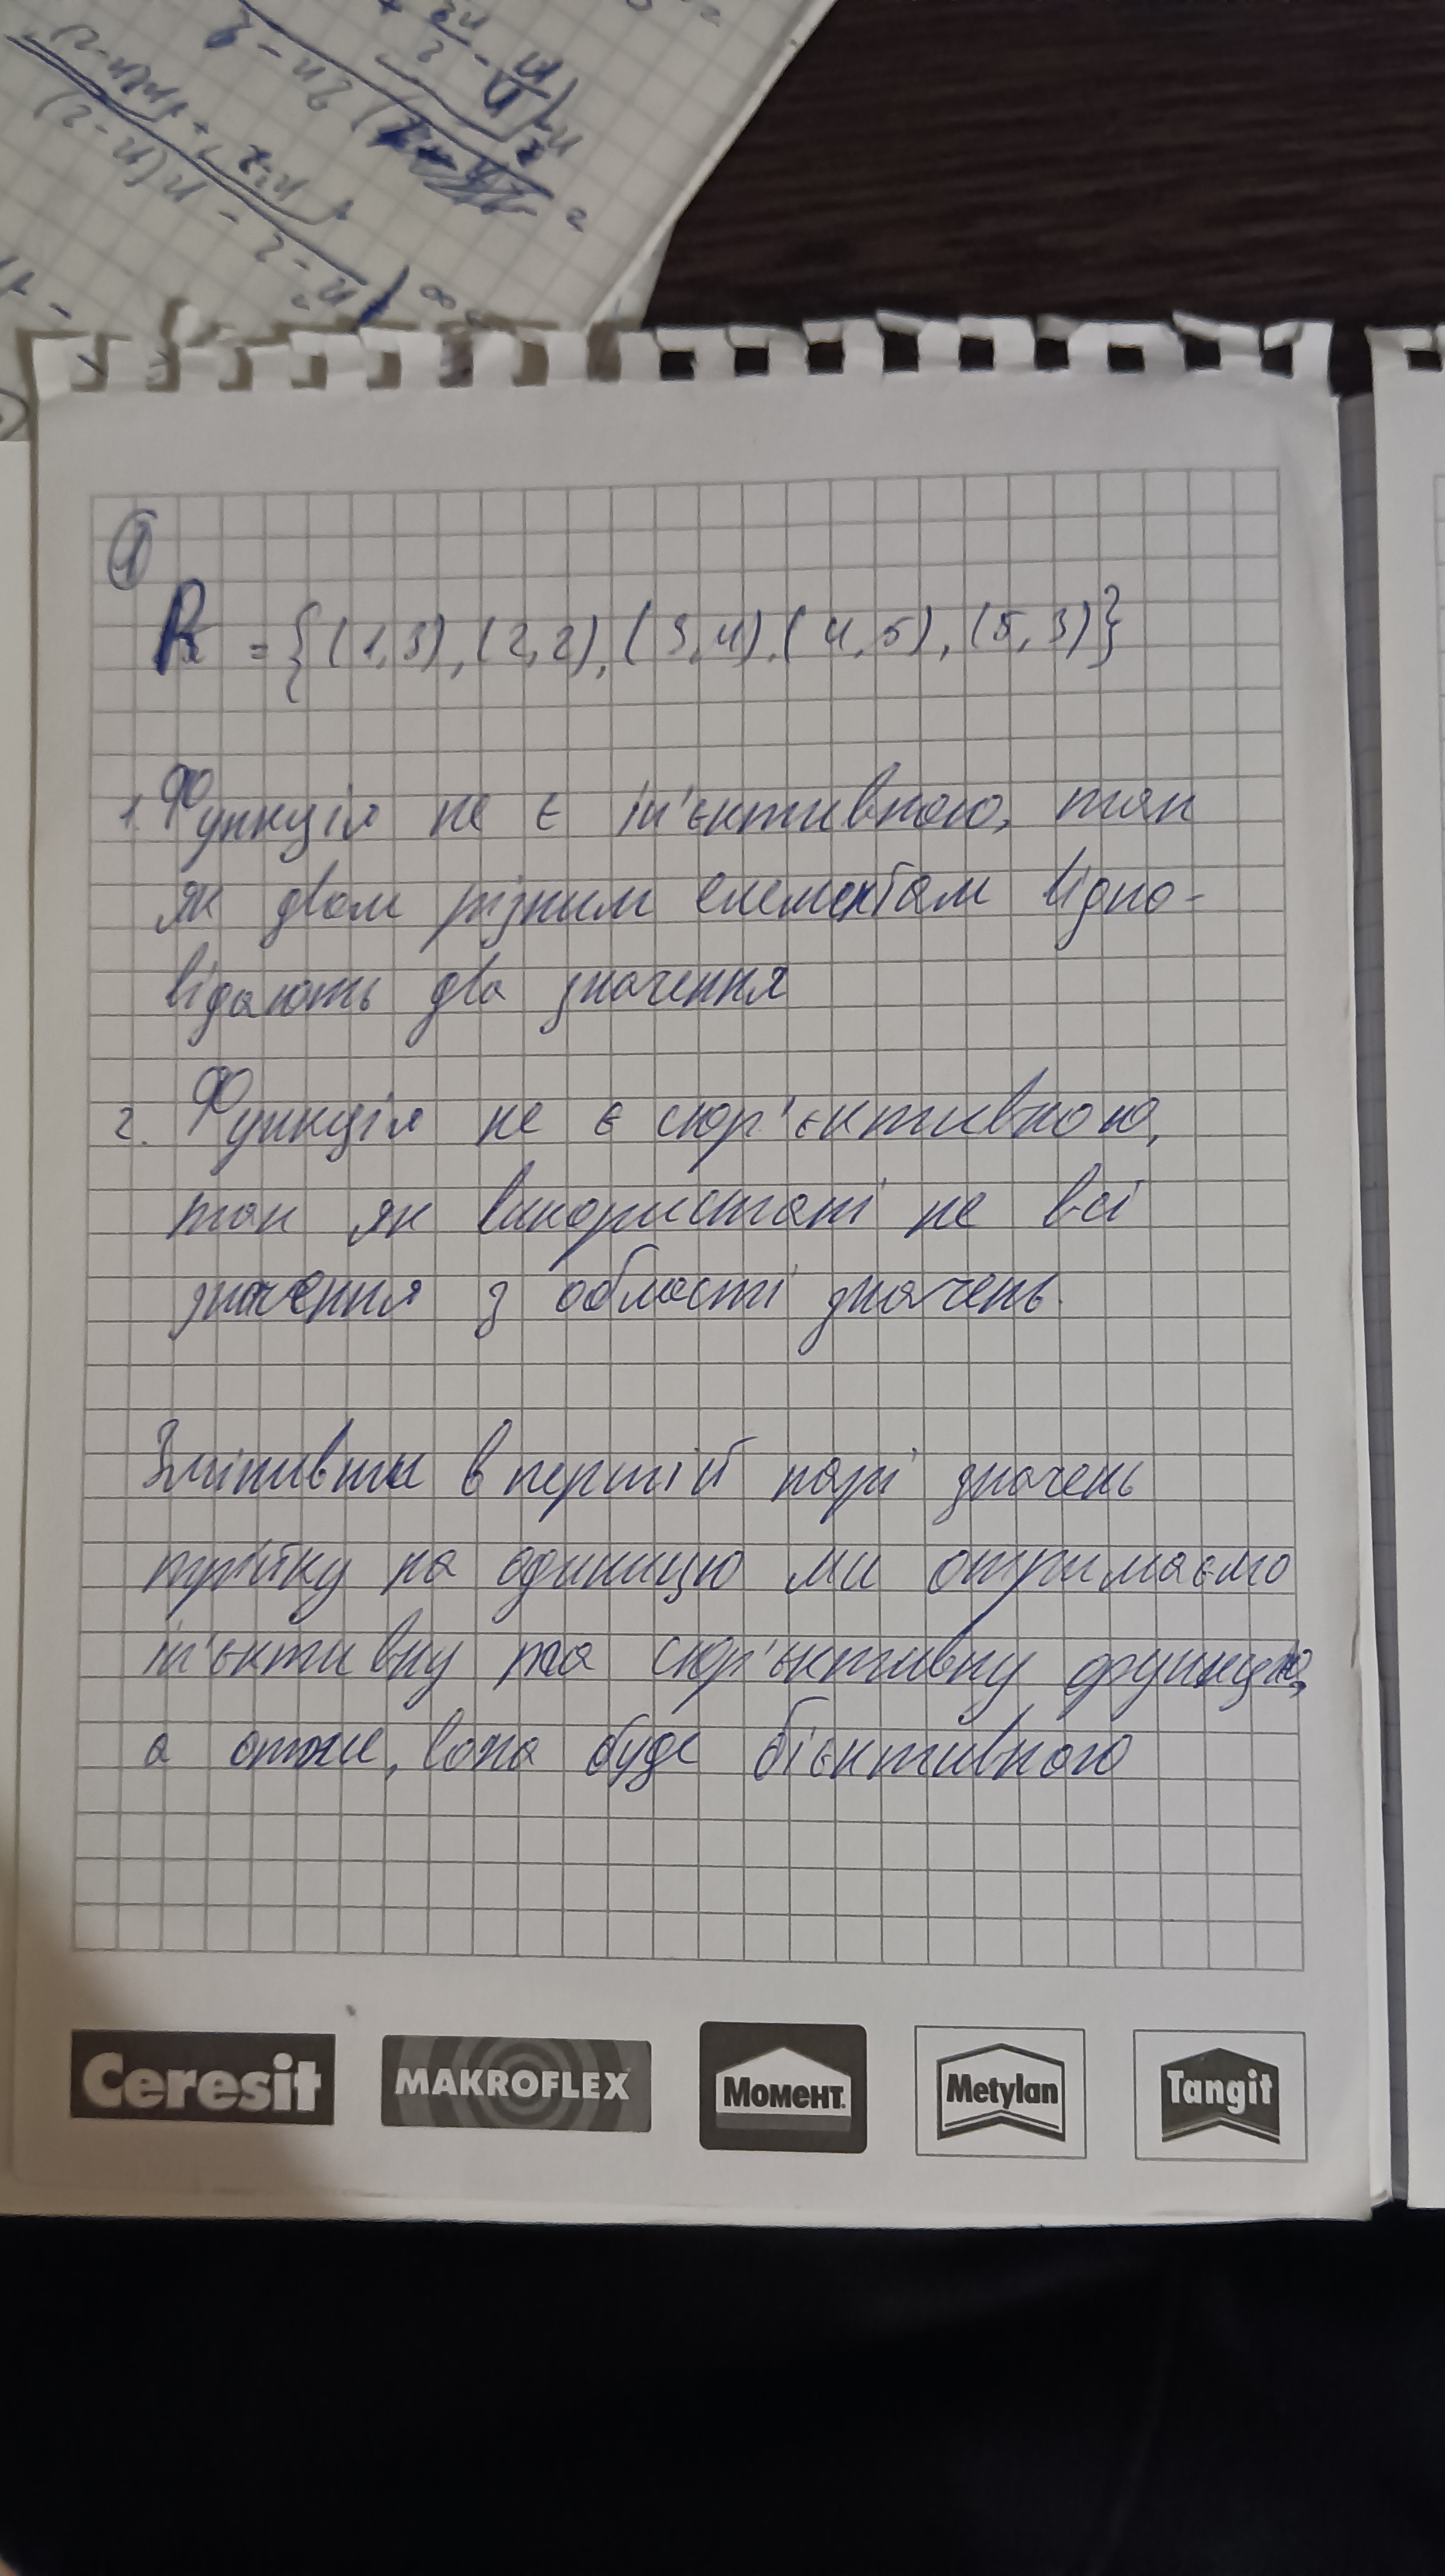 ①
R = {(1,3), (2,2), (3,4), (4,5), (5,3)}
1. Функція не є ін'єктивною, так
як двом різним елементам відпо-
відають два значення
2. Функція не є сюр'єктивною,
так як використані не всі
значення з області значень.
Змінивши в першій парі значень
трійку на одиницю ми отримаємо
ін'єктивну та сюр'єктивну функцію,
а отже, вона буде бієктивною
Ceresit MAKROFLEX Момент Metylan Tangit